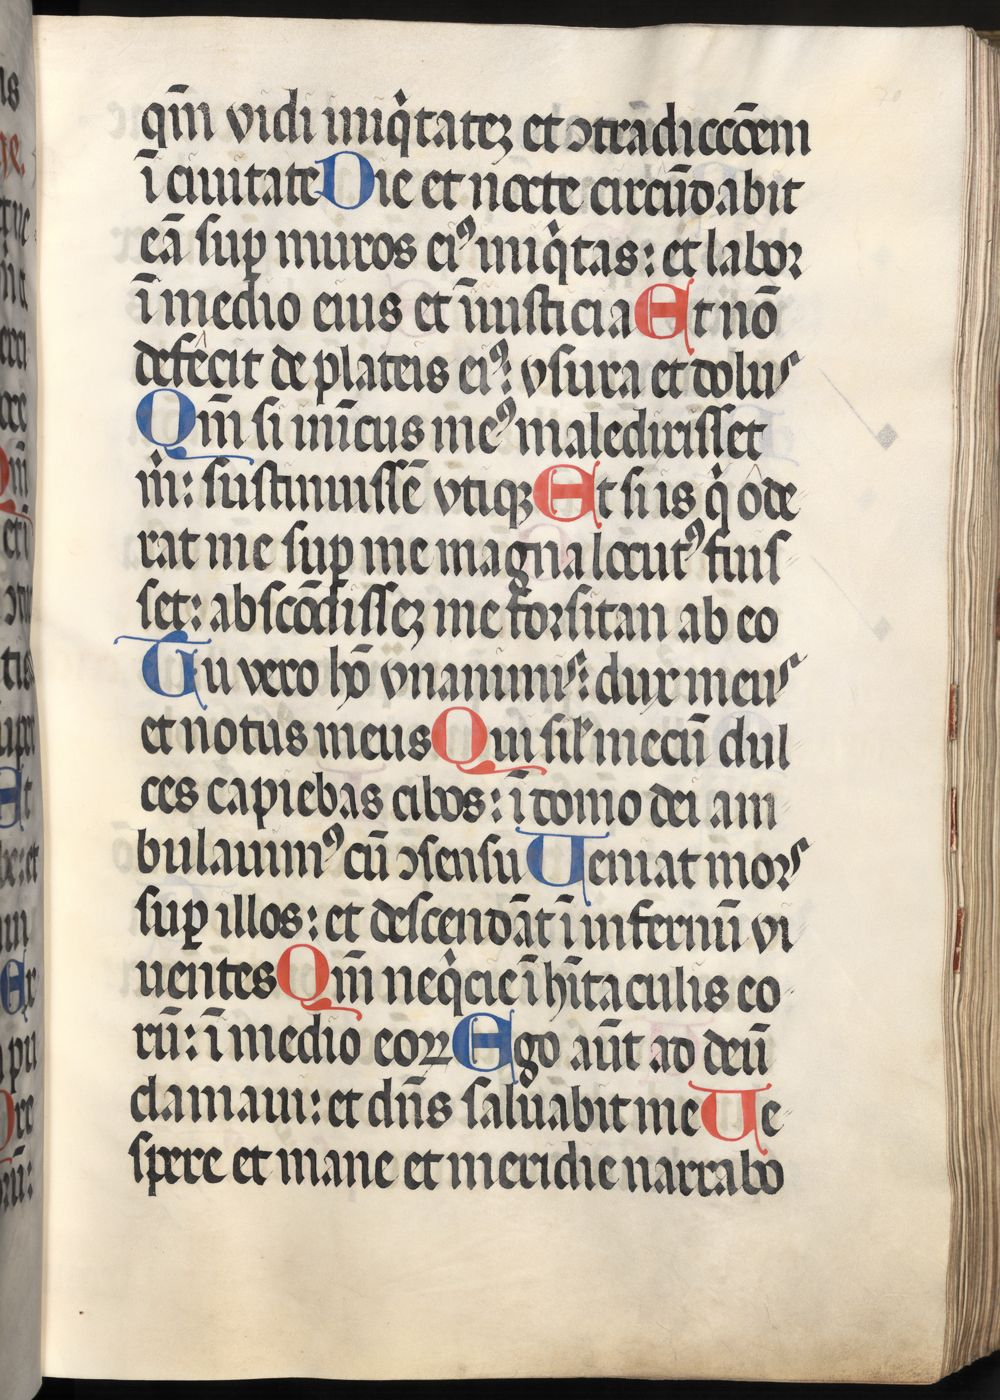 qm̄ vidi iniq̇tatēꝫ et ɔtradiccōem
ī ciuitate Die et nocte circūdabit
eā suꝑ muros eiꝰ iniq̇tas: et labor
ī medio eius et iniusticia Et nō
defecit de plateis eiꝰ: vsura et dolus
Qm̄ si inīcus meꝰ maledixisset
m̄: sustinuissē vtiqꝫ Et si is q̇ ode
rat me suꝑ me magna locutꝰ fuis
set: abscōdisseꝫ me forsitan ab eo
Tu vero hō vnanimis: dux meus
et notus meus Qui sil̄ mecū dul
ces capiebas cibos: ī domo dei am
bulauimꝰ cū ɔsensu Ueniat mors
suꝑ illos: et descendāt ī infernū vi
uentes Qm̄ neq̇cie ī hītaculis eo
rū: ī medio eoꝝ Ego aūt ad deū
clamaui: et dn̄s saluabit me Ue
spere et mane et meridie narrabo